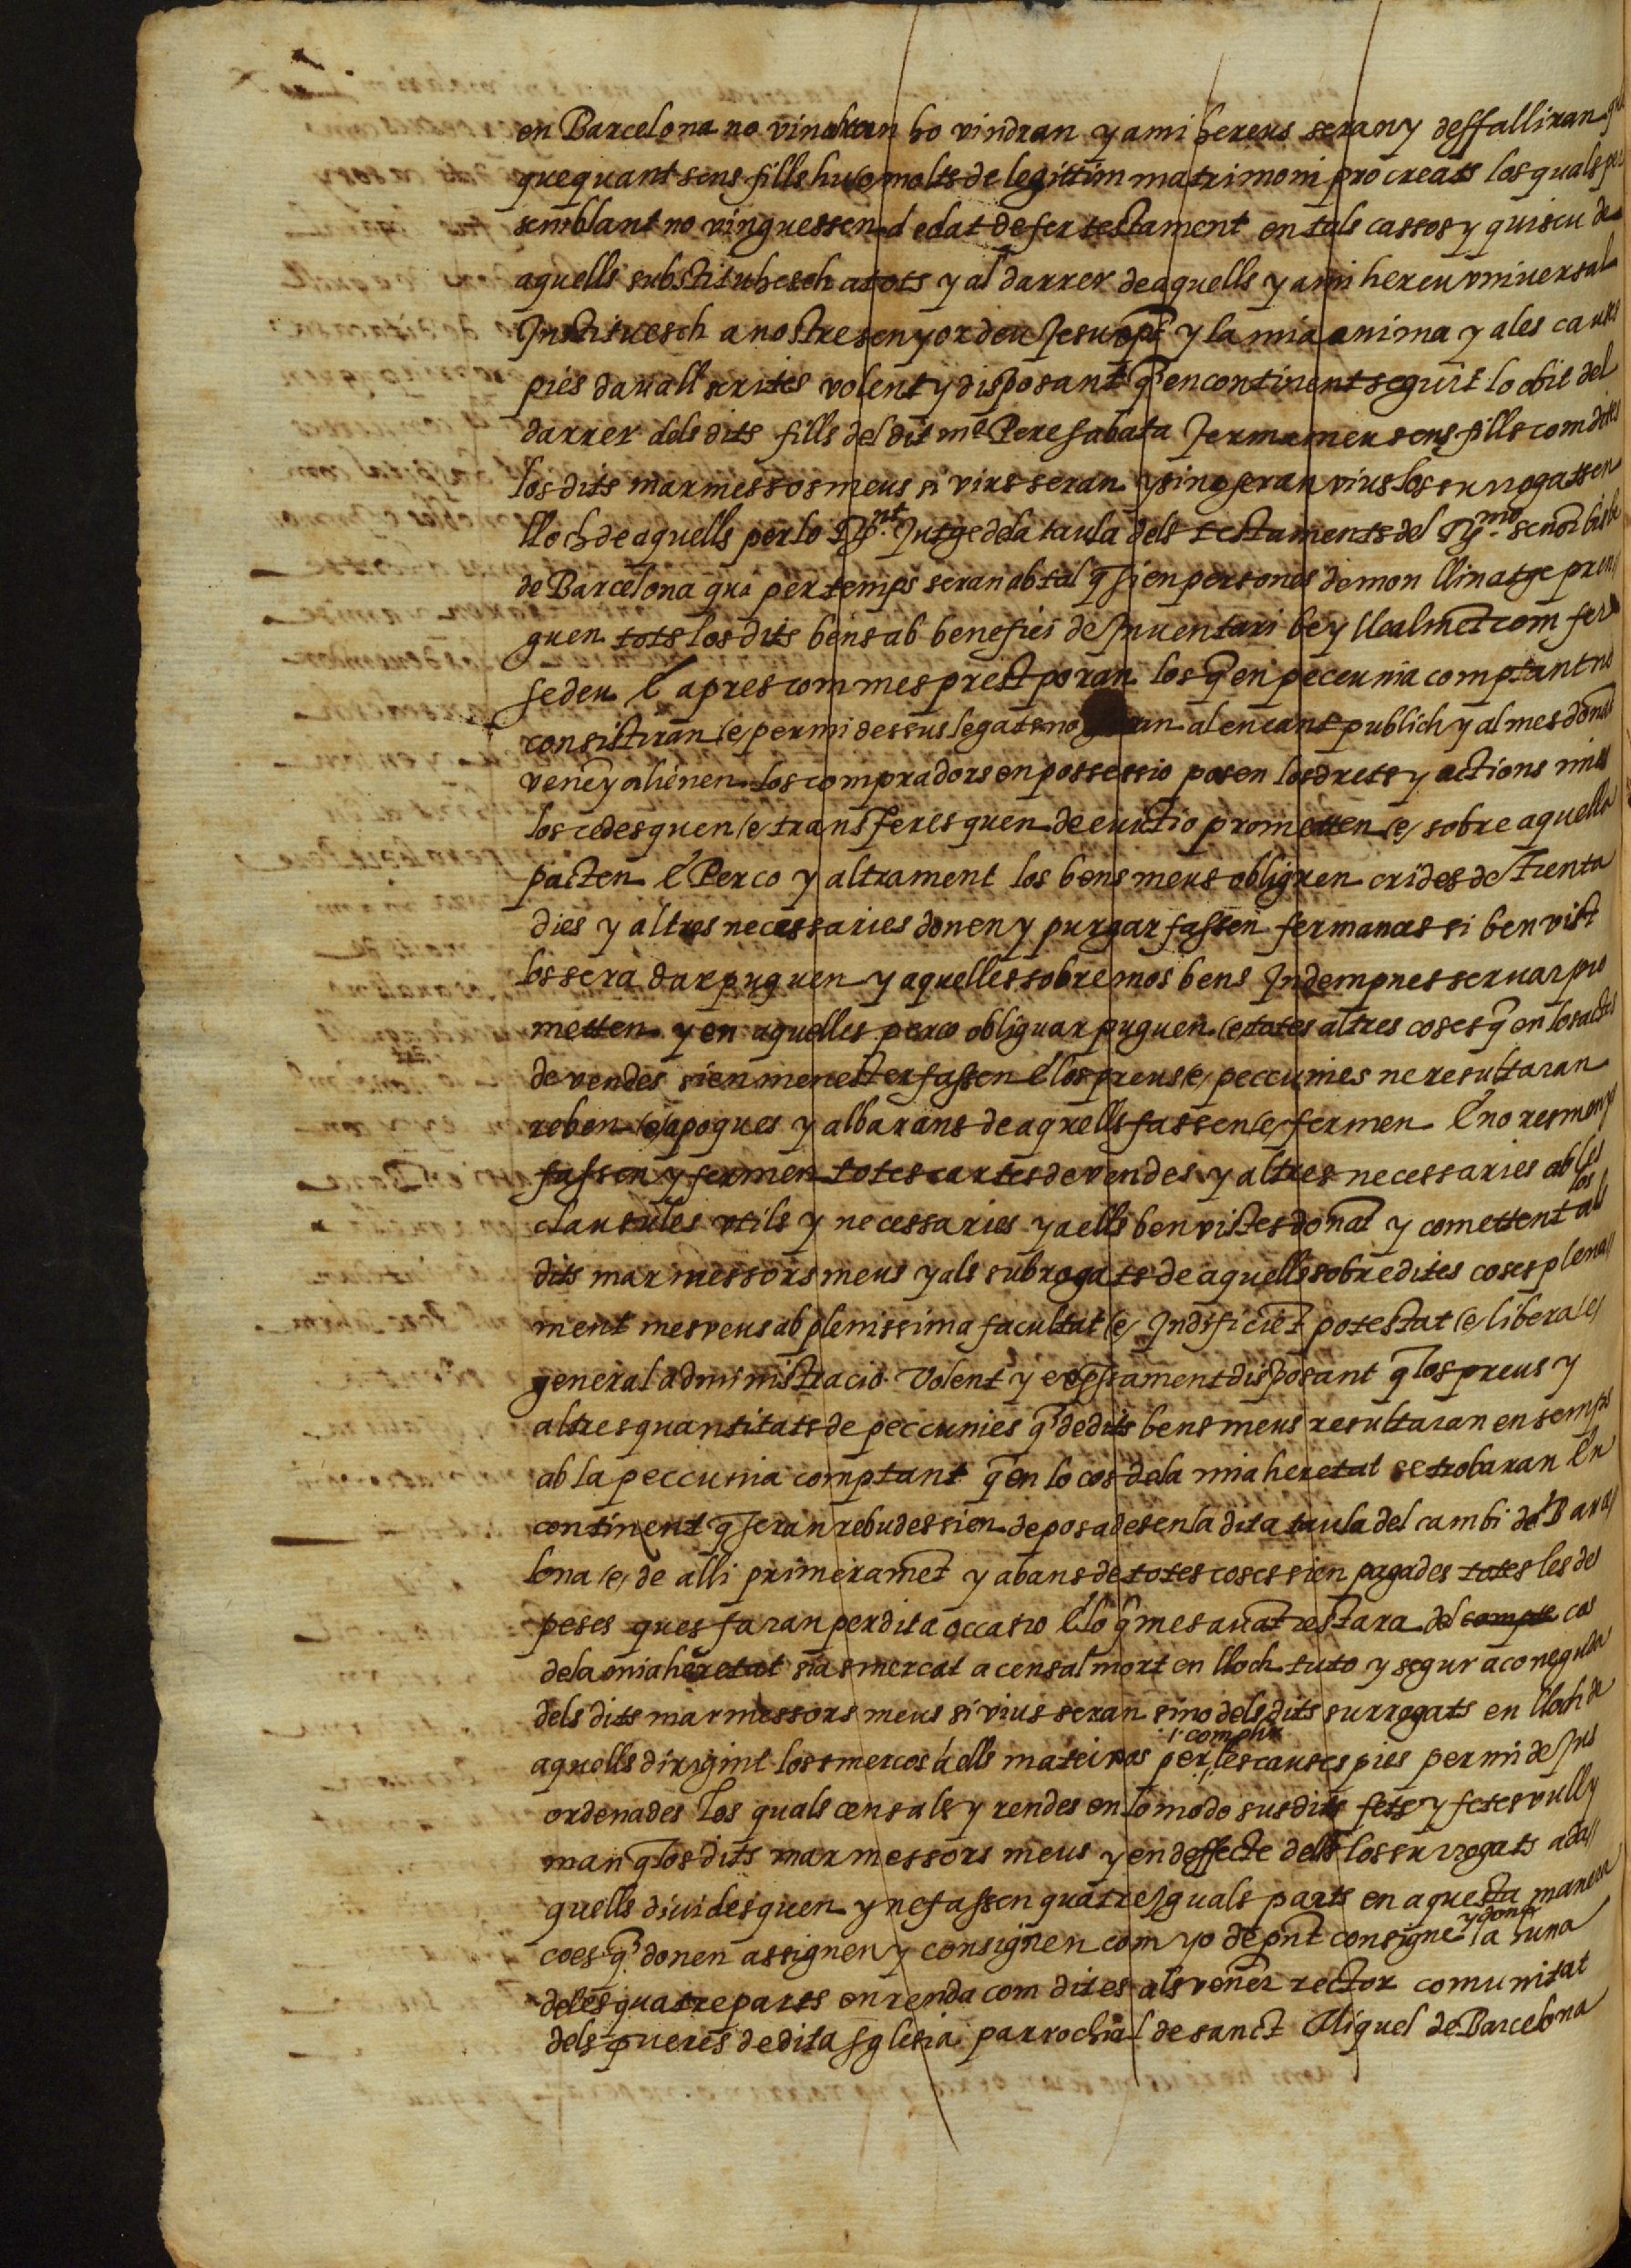 en Barcelona no vindran ho vindran y a mi hereus seran y deffalliran
quequant sens fills hu o molts de legittim matrimoni procreats los quals per
semblant no vinguessen a edat de fer testament en tals cassos y quiscu de
aquells substituhesch a tots y al darrer de aquells y a mi hereu vniuersal
Instituesch a nostre senyor deu Jesu xp̄t y la mia anima y a les causes
pies dauall scrites volent y disposant q̄ encontinent seguit lo obit del
darrer dels dits fills del dit mº Pere Sabata germa meu sens fills com dit es
los dits marmessos meus si vius seran y si no seran vius los surrogats en
lloch de aquells per lo Jutge de la taula dels testaments del Rmo señor bisbe
de Barcelona qui per temps seran ab tal q̄ sien persones de mon llinatge pren/
guen tots los dits bens ab benefici de Inuentari be y llealmēt com fer
se deu E apres com mes prest poran los q̄ en peccunia comptant no
consistiran /e/ per mi dessus legats no seran al encant publich y al mes donāt
vene y alienen los compradors en possessio posen los drets y actions mies
los cedesquen /e/ transferesquen de euictio prometten /e/ sobre aquella
pacten E Perco y altrament los bens meus obliguen crides de trenta
dies y altres necessaries donen y purgar fassen fermances si ben vist
los sera dar puguen y aquelles sobre mos bens Indempnes seruar pro
metten y en aquelles perco obliguar puguen /e/ totes altres coses q̄ en los actes
de vendes sien menester fassen E los preus /e/ peccunies ne resultaran
reben /e/ apoques y albarans de aquells fassen /e/ fermen E no resmenys
fassen y fermen totes cartes de vendes y altres necessaries ab les
clausules vtils y necessaries y a ells ben vistes donāt y comettent als
dits marmessors meus y als subrogats de aquells sobredites coses plena//
ment mes veus ab plenissima facultat /e/ Indificiēt potestat /e/ libera /e/
general administracio. Volent y expressament disposant q̄ los preus y
altres quantitats de peccunies q̄ de dits bens meus resultaran ensemps
ab la peccunia comptant q̄ en lo cos de la mia heretat se trobaran En
continent q̄ seran rebudes sien deposades en la dita taula del cambi de Barce/
lona /e/ de alli primeramēt y abans de totes coses sien pagades totes les des
peses ques faran per dita occasio E lo q̄ mes auāt restara del compte cos
de la mia heretat sia smercat a censal mort en lloch tuto y segur a coneguda
dels dits marmessors meus si vius seran sino dels dits surrogats en lloch de
aquells dirigint los smercos a ells mateixos per complir les causes pies per mi dessus
ordenades Los quals censals y rendes en lo modo susdit fets y fetes vull y
man q̄ los dits marmessors meus y en deffecte dells los surrogats ad a//
quells diuidesquen y ne fassen quatre Iguals parts en aquesta manera
coes q̄ donen assignen y consignen com yo de pn̄t consigne y done a la una
de les quatre parts en renda com dit es als vener rector comunitat
dels preueres de dita Sglesia parrochial de sanct Miquel de Barcelona